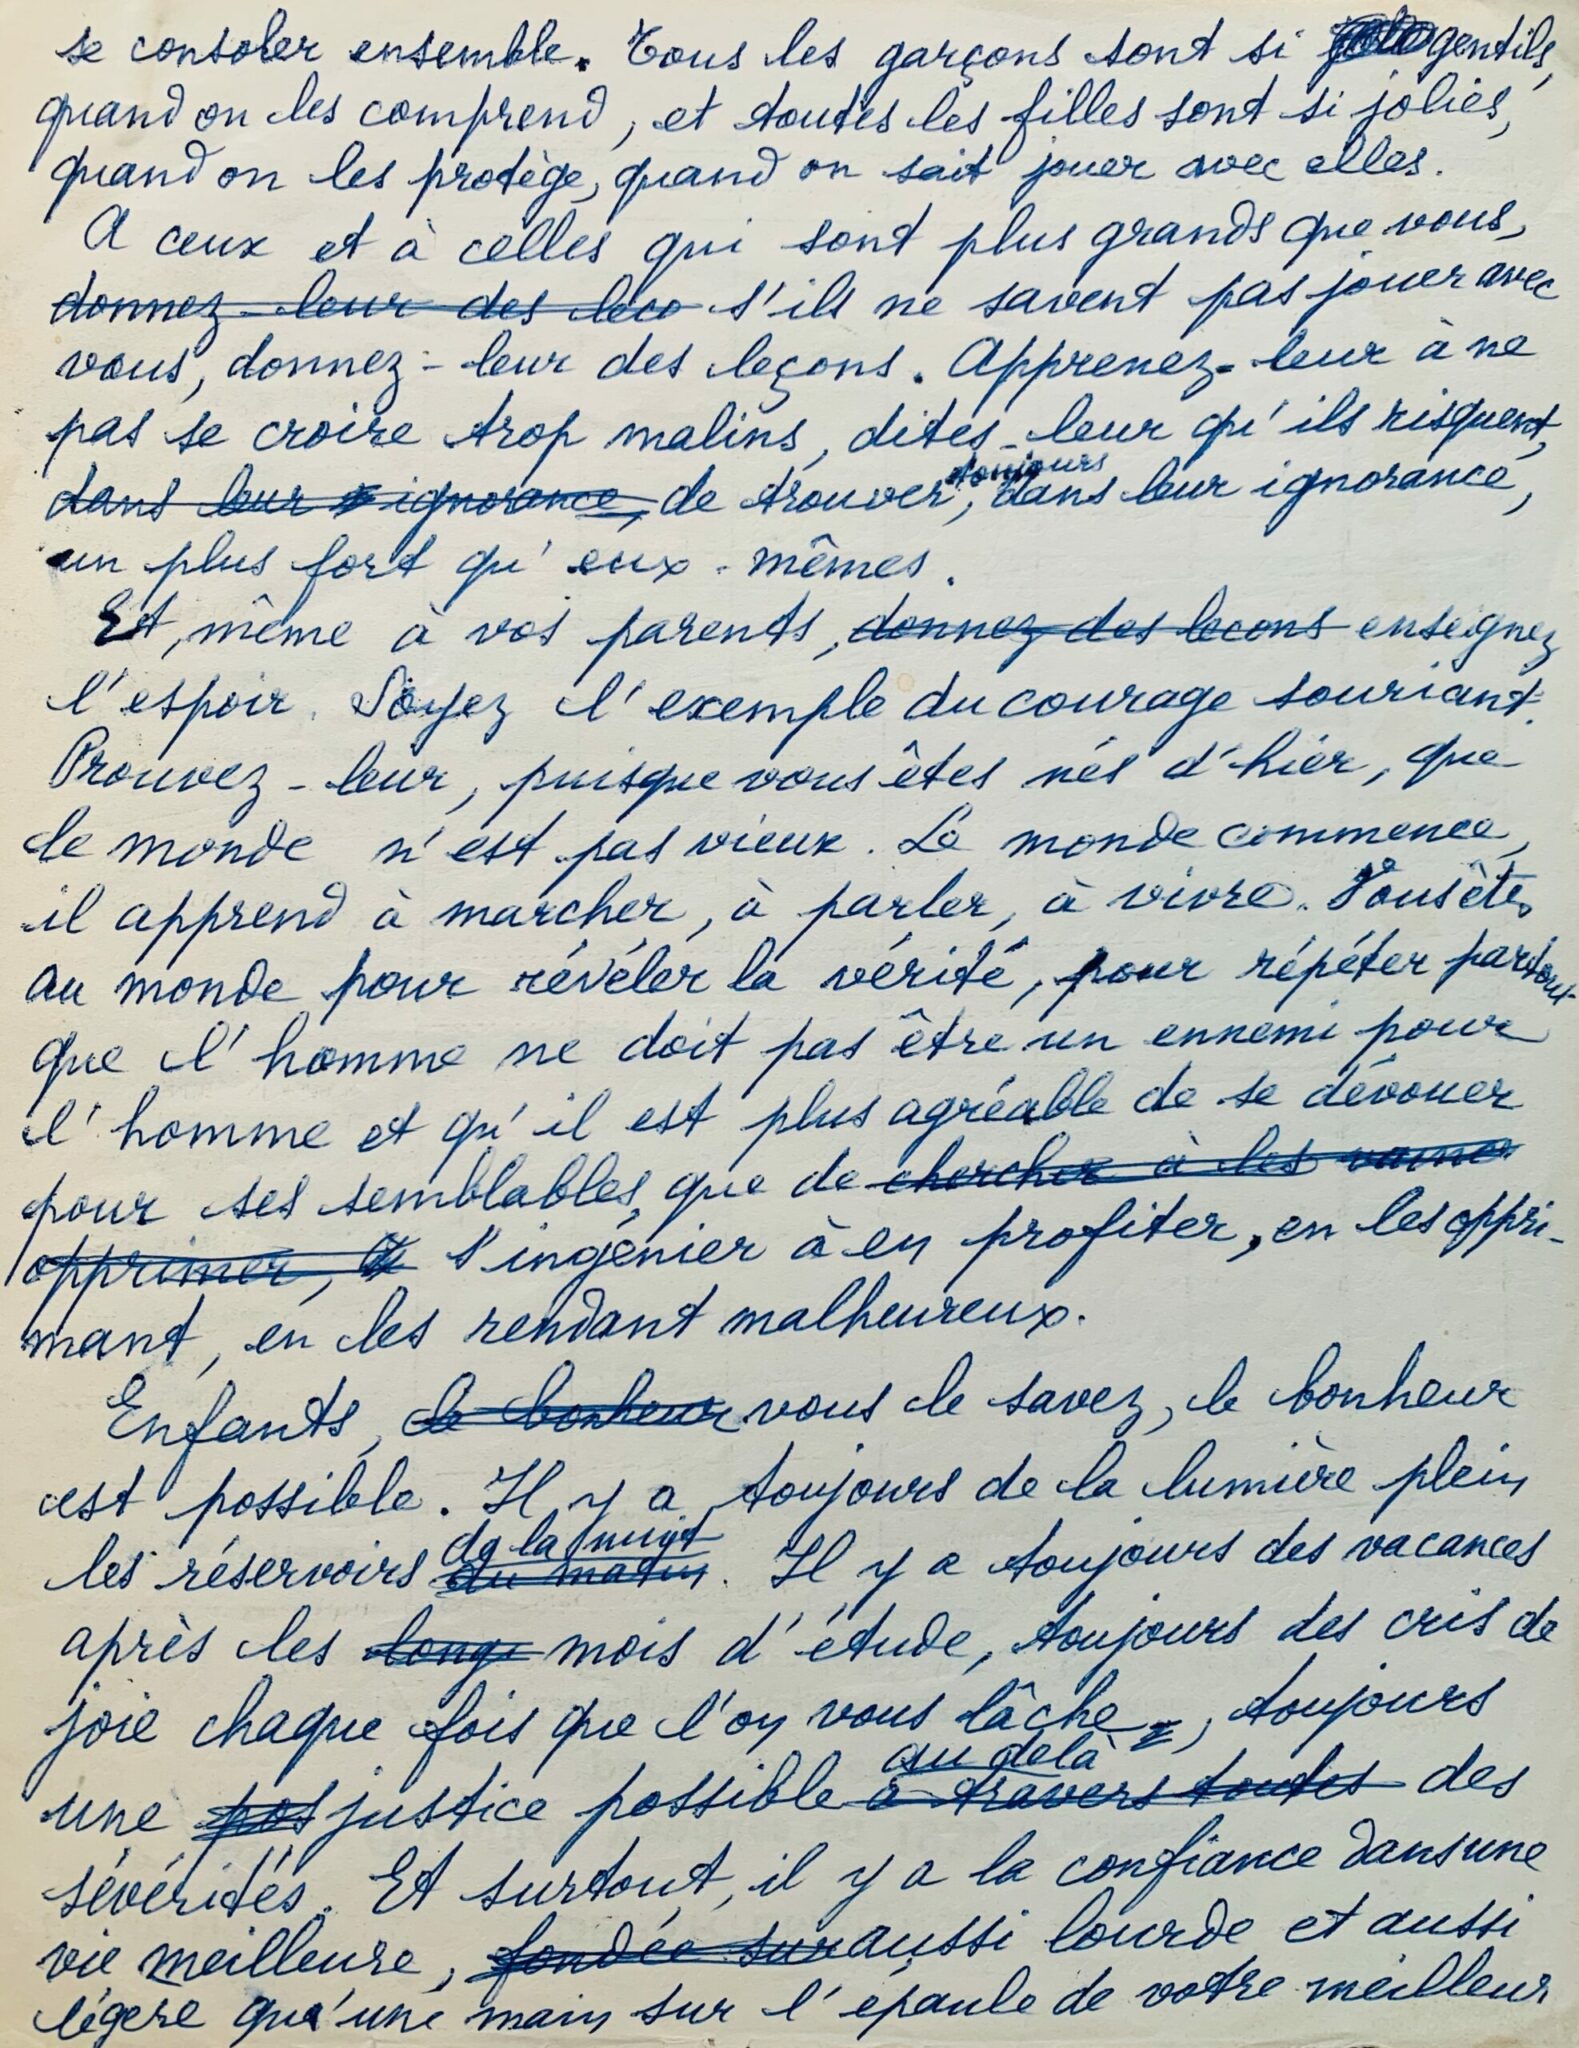 se consoler ensemble. Tous les garçons sont si gentils,
quand on les comprend, et toutes les filles sont si jolies,
quand on les protège, quand on sait jouer avec elles.
A ceux et à celles qui sont plus grands que vous,
donnez-leur des leço s'ils ne savent pas jouer avec
vous, donnez-leur des leçons. Apprenez-leur à ne
pas se croire trop malins, dites-leur qu'ils risquent,
toujours
dans leur ignorance, de trouver, dans leur ignorance,
un plus fort qu'eux-mêmes.
Et, même à vos parents, donnez des leçons enseignez
l'espoir. Soyez l'exemple du courage souriant.
Prouvez-leur, puisque vous êtes nés d'hier, que
le monde n'est pas vieux. Le monde commence,
il apprend à marcher, à parler, à vivre. Vous êtes
au monde pour révéler la vérité, pour répéter partout
que l'homme ne doit pas être un ennemi pour
l'homme et qu'il est plus agréable de se dévouer
pour ses semblables, que de chercher à les
opprimer, s'ingénier à en profiter, en les oppri-
mant, en les rendant malheureux.
Enfants, le bonheur vous le savez, le bonheur
est possible. Il y a toujours de la lumière plein
de la nuit
les réservoirs du matin. Il y a toujours des vacances
après les longs mois d'étude, toujours des cris de
joie chaque fois que l'on vous lâche, toujours
au delà
une pos justice possible à travers toutes des
sévérités. Et surtout, il y a la confiance dans une
vie meilleure, fondée sur aussi lourde et aussi
légère qu'une main sur l'épaule de votre meilleur